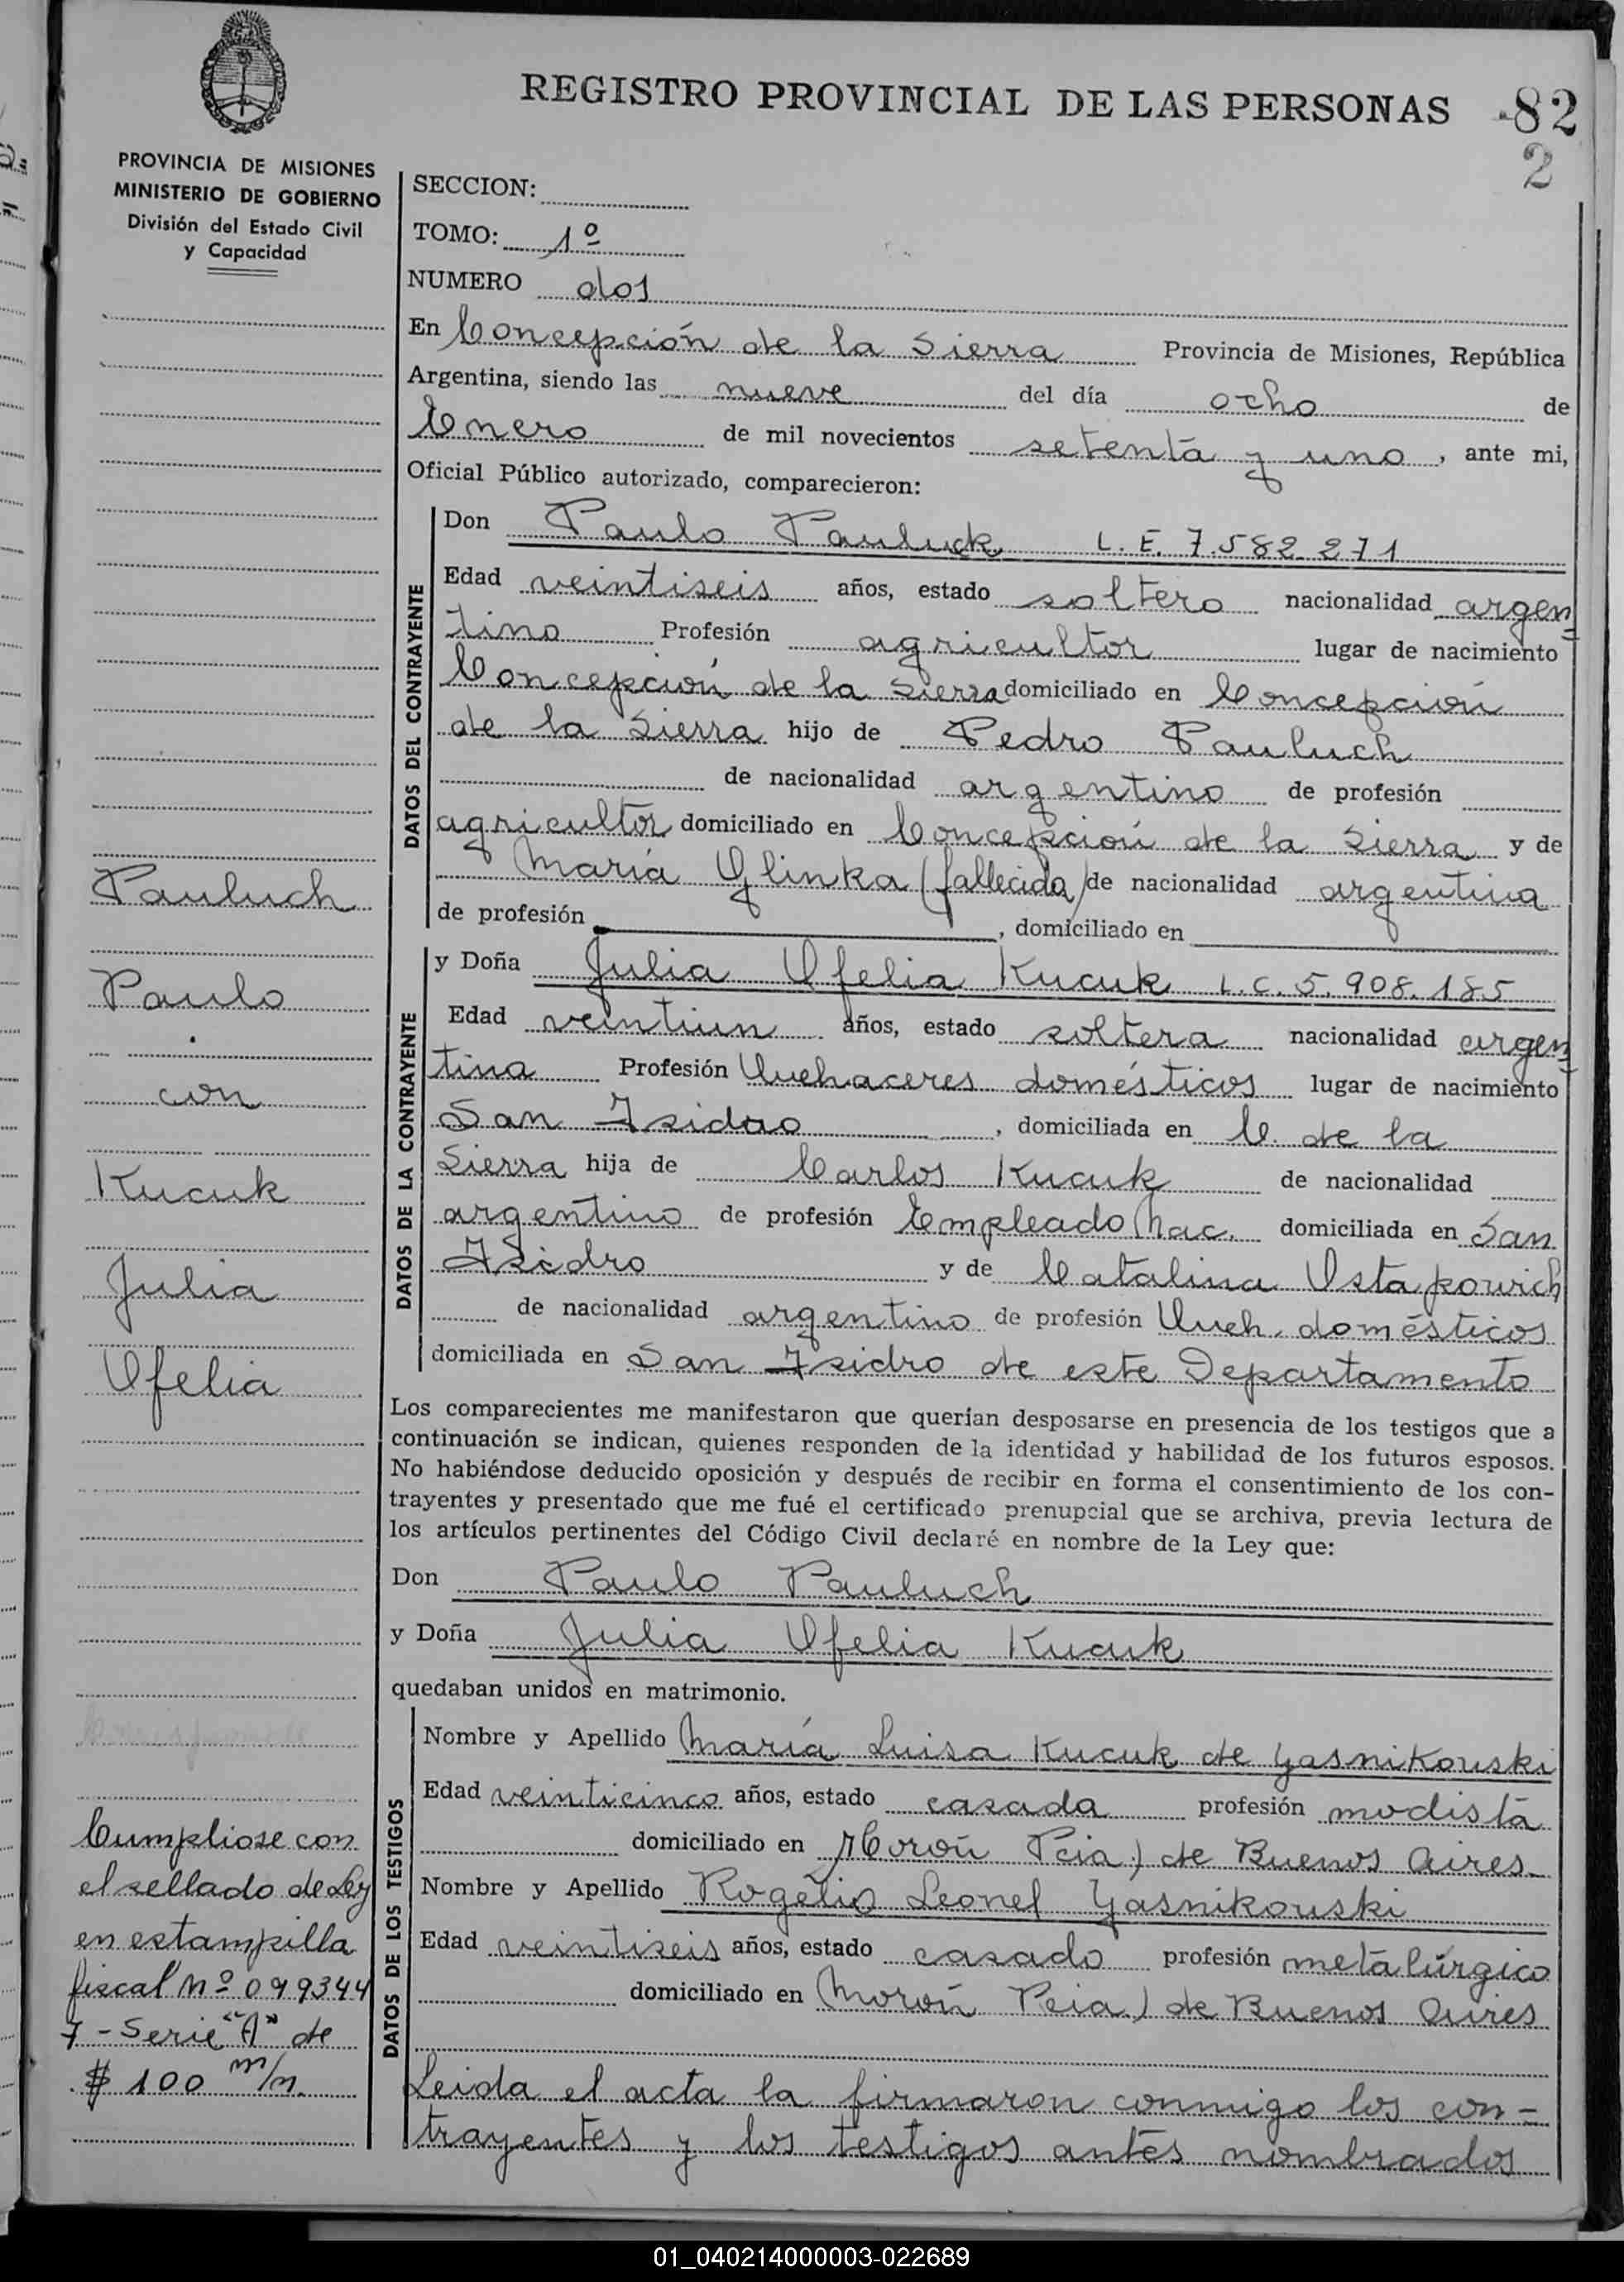 REGISTRO PROVINCIAL DE LAS PERSONAS
82
2
PROVINCIA DE MISIONES
MINISTERIO DE GOBIERNO
División del Estado Civil
y Capacidad
SECCION:
TOMO: 1º
NUMERO dos
En Concepción de la Sierra Provincia de Misiones, República
Argentina, siendo las nueve del día ocho de
Enero de mil novecientos setenta y uno, ante mi,
Oficial Público autorizado, comparecieron:
DATOS DEL CONTRAYENTE
Don Paulo Pauluck L. E. 7.582.271
Edad veintiseis años, estado soltero nacionalidad argen
tino Profesión agricultor lugar de nacimiento
Concepción de la Sierra domiciliado en Concepción
de la Sierra hijo de Pedro Pauluch
de nacionalidad argentino de profesión
agricultor domiciliado en Concepción de la Sierra y de
María Glinka (fallecida) de nacionalidad argentina
de profesión , domiciliado en
DATOS DE LA CONTRAYENTE
y Doña Julia Ofelia Kucuk L.C. 5.908.185
Edad veintiun años, estado soltera nacionalidad argen
tina Profesión Quehaceres domésticos lugar de nacimiento
San Isidro , domiciliada en C. de la
Sierra hija de Carlos Kucuk de nacionalidad
argentino de profesión Empleado Nac. domiciliada en San
Isidro y de Catalina Ostapowich
de nacionalidad argentino de profesión Queh. domésticos
domiciliada en San Isidro de este Departamento
Los comparecientes me manifestaron que querían desposarse en presencia de los testigos que a
continuación se indican, quienes responden de la identidad y habilidad de los futuros esposos.
No habiéndose deducido oposición y después de recibir en forma el consentimiento de los con-
trayentes y presentado que me fué el certificado prenupcial que se archiva, previa lectura de
los artículos pertinentes del Código Civil declaré en nombre de la Ley que:
Don Paulo Pauluch
y Doña Julia Ofelia Kucuk
quedaban unidos en matrimonio.
DATOS DE LOS TESTIGOS
Nombre y Apellido María Luisa Kucuk de Yasnikouski
Edad veinticinco años, estado casada profesión modista
domiciliado en Morón Pcia) de Buenos Aires
Nombre y Apellido Rogelio Leonel Yasnikouski
Edad veintiseis años, estado casado profesión metalúrgico
domiciliado en Morón Pcia) de Buenos Aires
Leida el acta la firmaron conmigo los con-
trayentes y los testigos antes nombrados
Pauluch
Paulo
con
Kucuk
Julia
Ofelia
Cumpliose con
el sellado de Ley
en estampilla
fiscal Nº 099344
7 - Serie "A" de
$ 100 m/n.
01_040214000003-022689